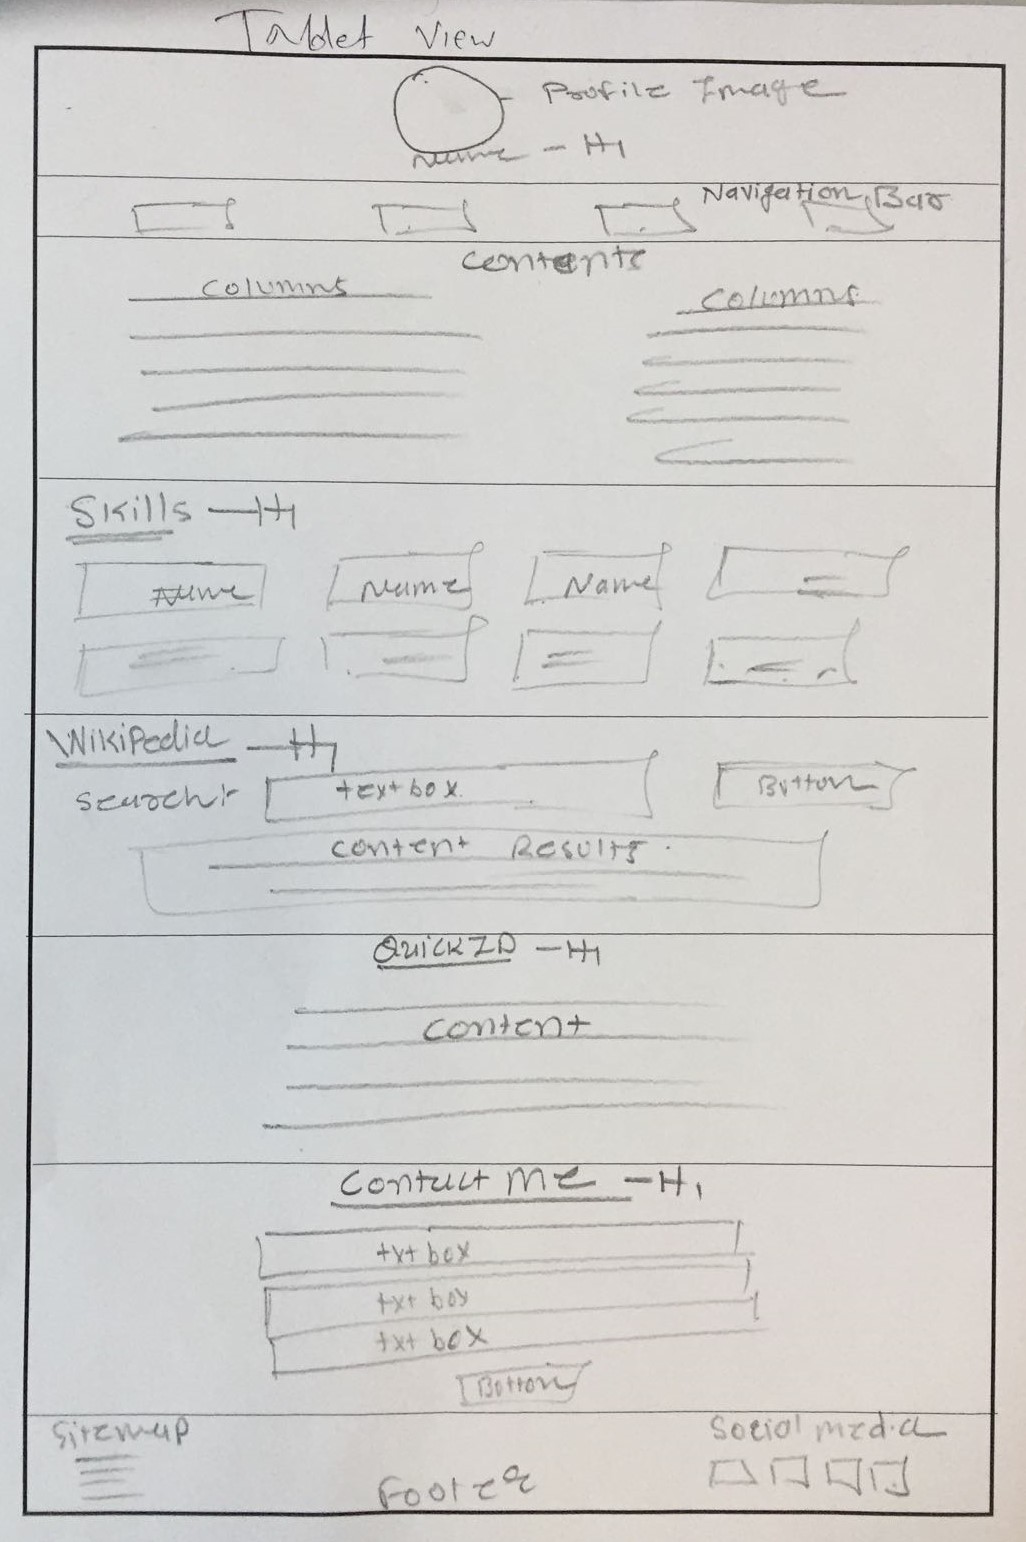 Tablet View
Profile Image
Name - H1
Navigation Bar
Contents
Columns
Columns
Skills - H1
Name Name Name
Wikipedia - H1
Search: text box Button
Content Results
Quick ID - H1
Content
Contact Me - H1
txt box
txt box
txt box
Button
Sitemap
Social media
Footer